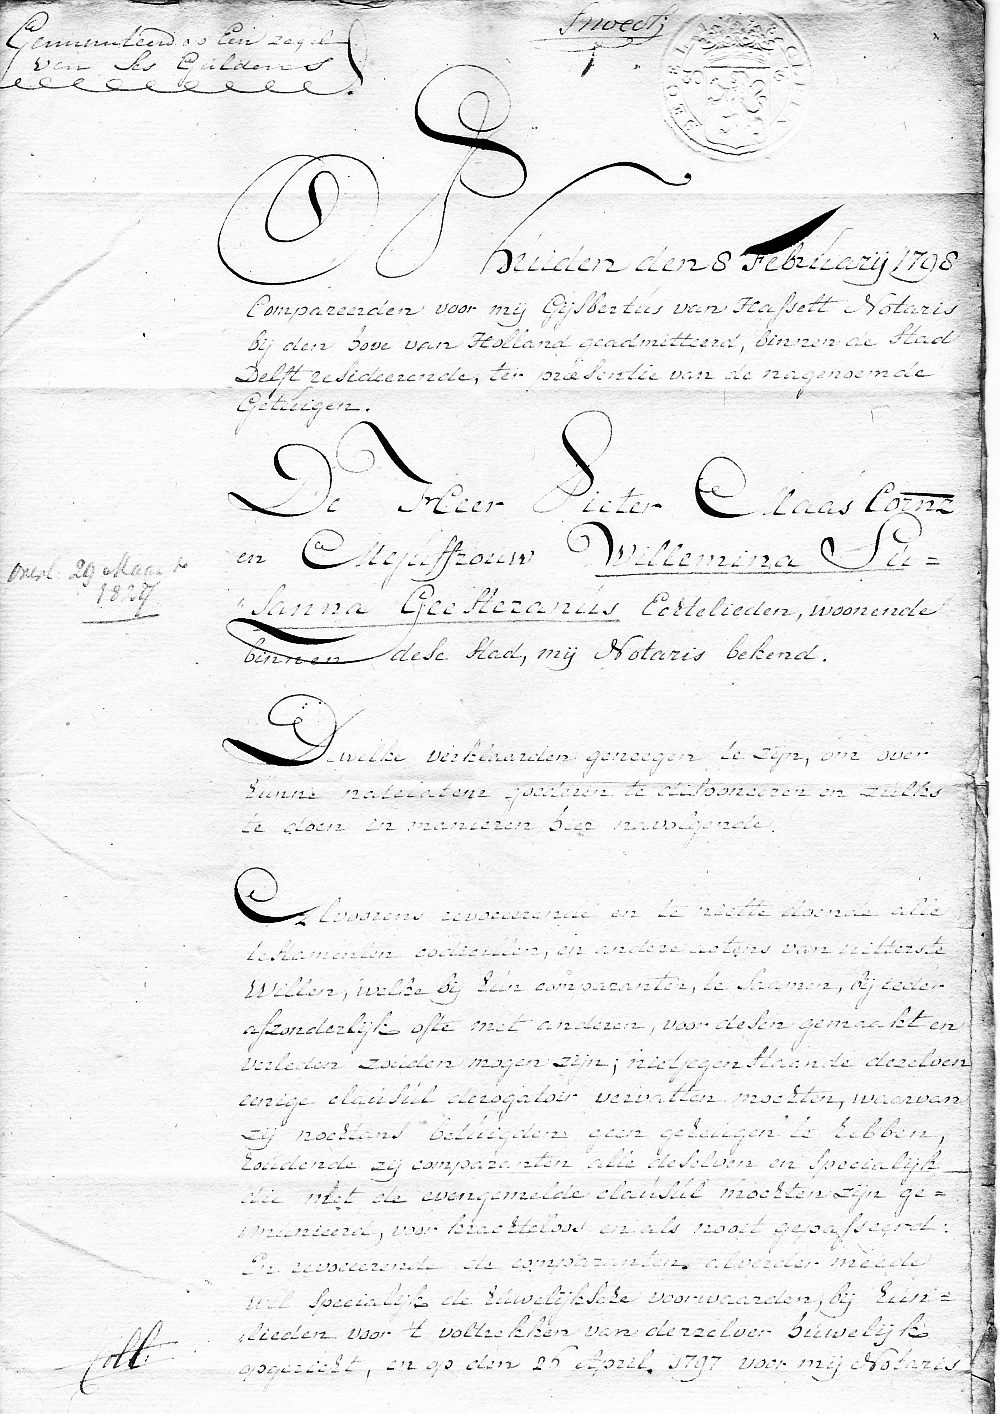 Gemunteerd op Een zegel
van Ses Guldens
ZEGEL
CLEIN
Op
huiden den 8 Februarij 1798
Compareerden voor mij Gijsbertus van Hasselt Notaris
bij den hove van Holland geadmitteerd, binnen de Stad
Delft resideerende, ter præsentie van de nagenoemde
Getuigen.
De Heer Pieter Claas Cornz
en Mejuffrouw Willemina Su=
"sanna Geesteranus Echtelieden, woonende
binnen dese Stad, mij Notaris bekend.
overl. 29 Maart
1827
Dewelke verklaarden geneegen te zijn, om over
hunne natelatene goederen te disponeeren en zulks
te doen in manieren hier navolgende.
Alvoorens revoceerende en te niette doende alle
testamenten codicillen, en andere actens van uitterste
Willen, welke bij hun comparanten, te saamen, bij ieder
afzonderlijk ofte met anderen, voor desen gemaakt en
verleden zouden mogen zijn; nietjegenstaande dezelven
eenige clausul derogatoir vervatten mochten, waarvan
zij nochtans betuigden geen geheugen te hebben,
houdende zij comparanten alle deselven en specialijk
die met de evengemelde clausul mochten zijn ge=
"munieerd, voor krachteloos en als nooit gepasseerd.
En revoceerende de comparanten alverder meede
wel specialijk de huwelijksche voorwaarden, bij hun=
"lieden voor 't voltrekken van derzelver huwelijk
opgericht, en op den 26 April 1797 voor mij Notaris
Coll: